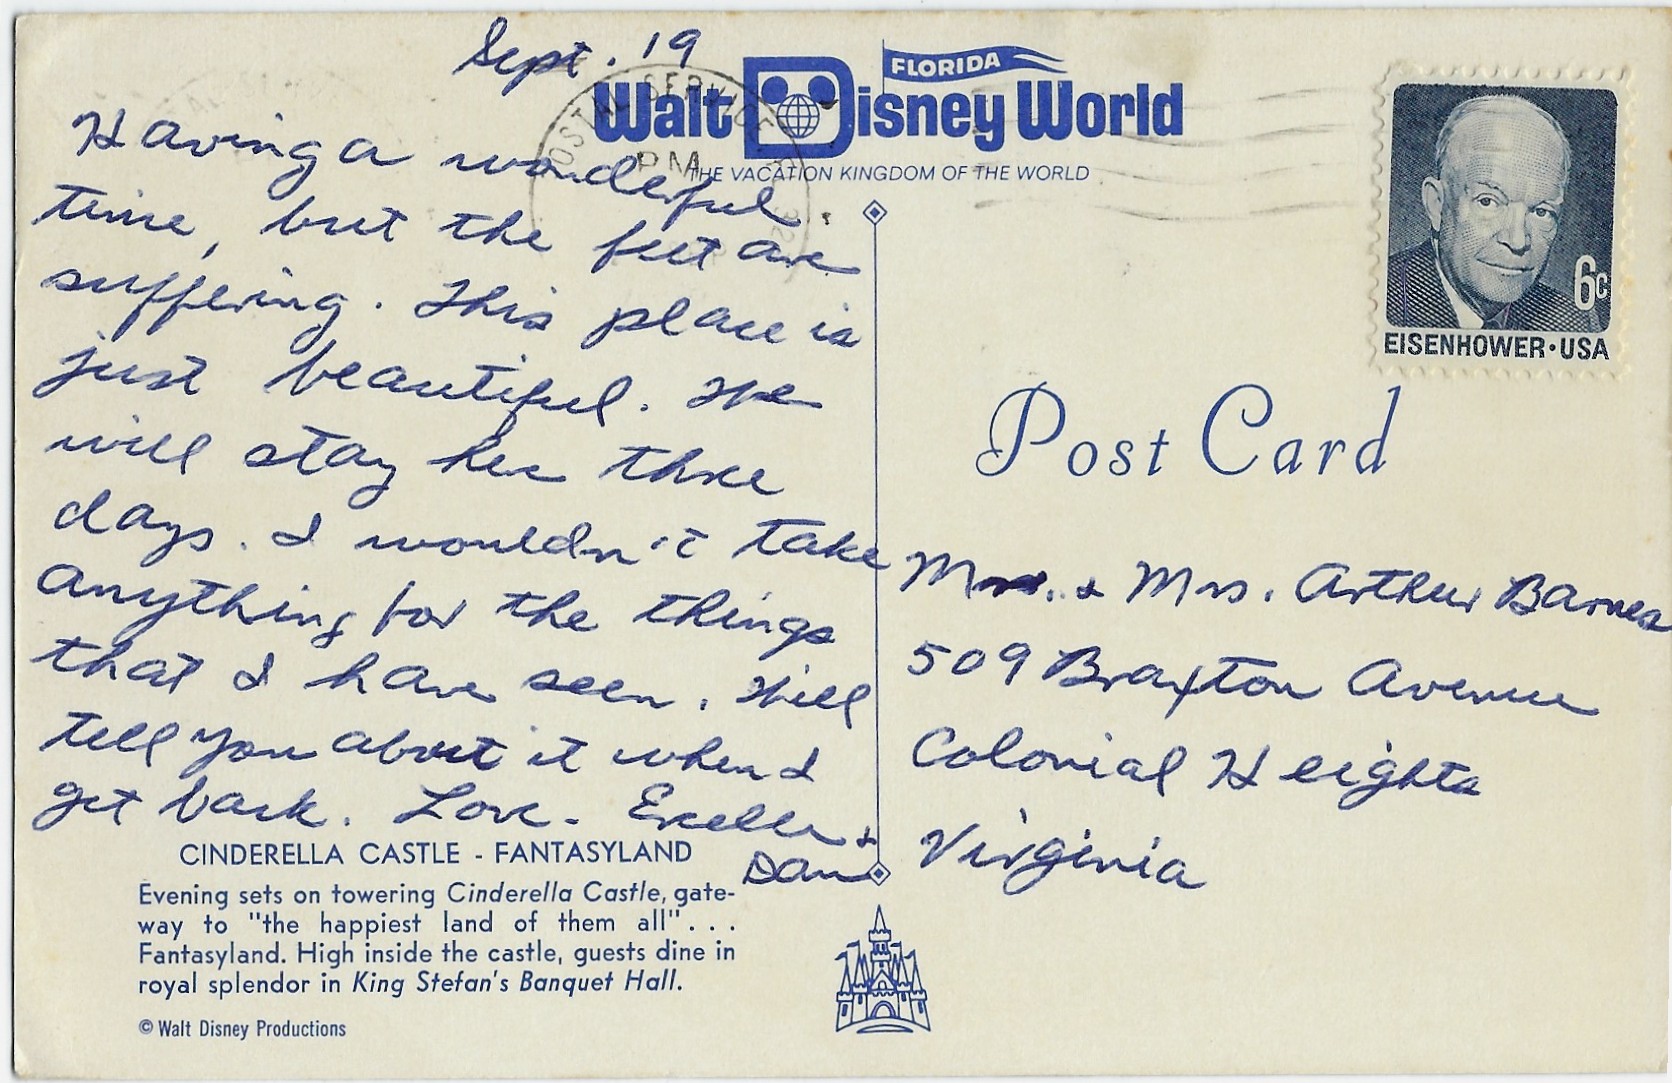 Sept. 19
Having a wondeful
time, but the feet are
suffering. This place is
just beautiful. We
will stay here three
days. I wouldn't take
anything for the things
that I have seen. Will
tell you about it when I
get back. Love - &
Dan
FLORIDA
Walt Disney World
THE VACATION KINGDOM OF THE WORLD
POSTAL SERVICE
PM
6c
EISENHOWER·USA
Post Card
Mr. & Mrs. Arthur Barnes
509 Braxton Avenue
Colonial Heights
Virginia
CINDERELLA CASTLE - FANTASYLAND
Evening sets on towering Cinderella Castle, gate-
way to "the happiest land of them all" . . .
Fantasyland. High inside the castle, guests dine in
royal splendor in King Stefan's Banquet Hall.
© Walt Disney Productions